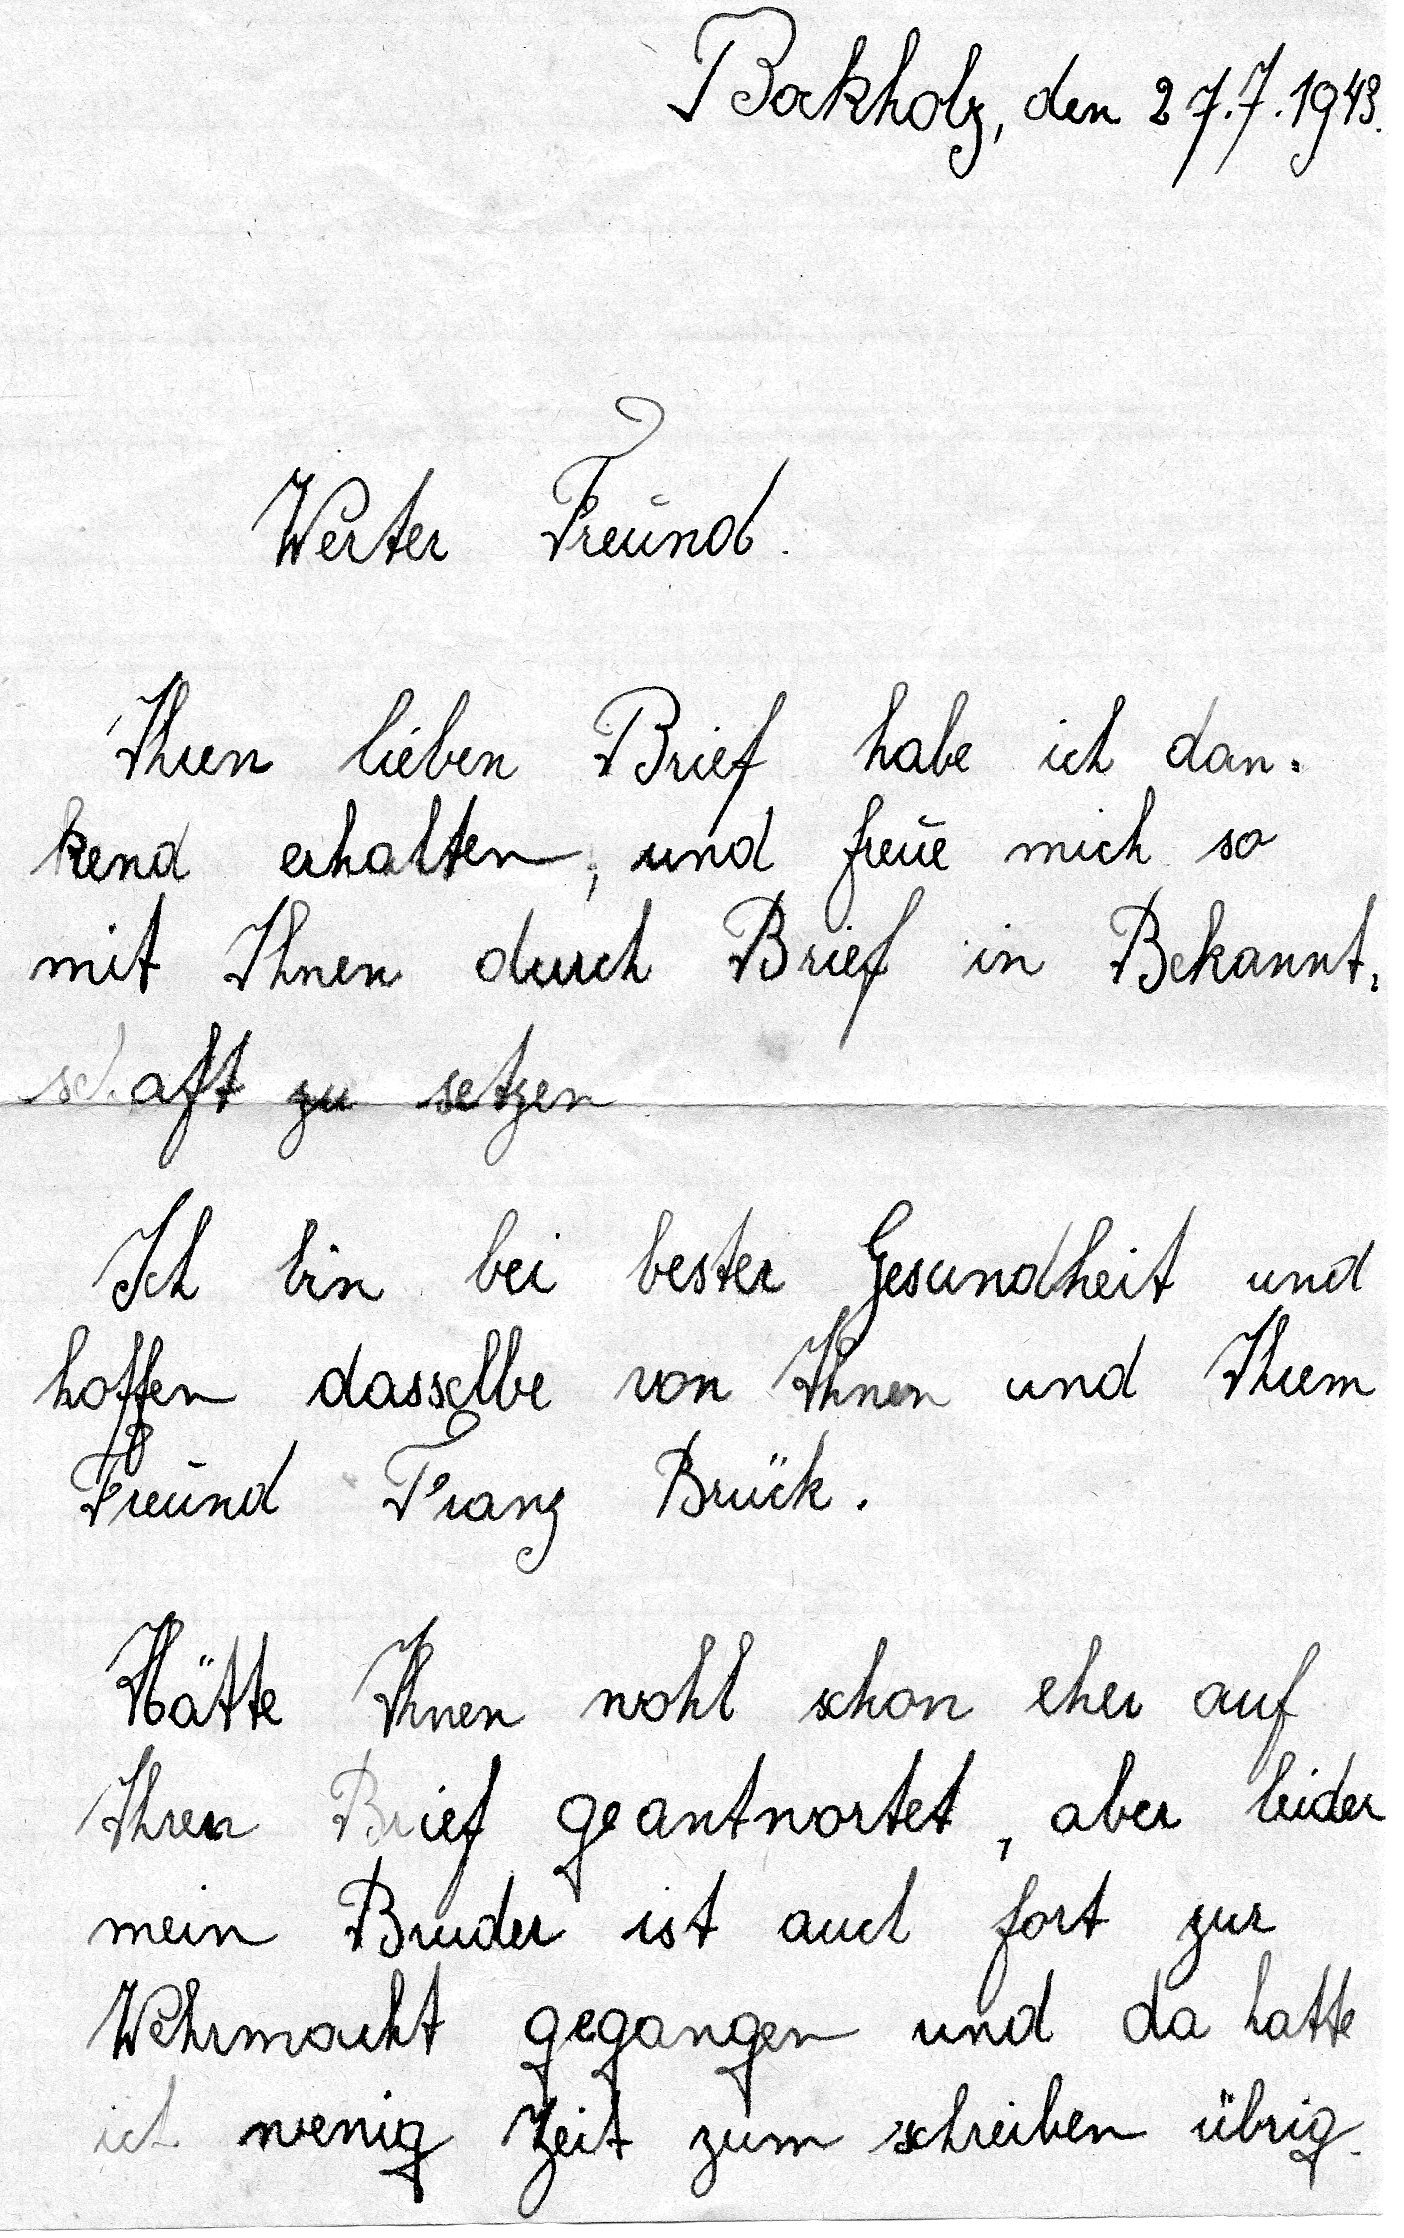 Bockholz, den 27.7.1943.
Werter Freund.
Ihren lieben Brief habe ich dan-
kend erhalten, und freue mich so
mit Ihnen durch Brief in Bekannt-
schaft zu setzen
Ich bin bei bester Gesundheit und
hoffen dasselbe von Ihnen und Ihrem
Freund Franz Brück.
Hätte Ihnen wohl schon eher auf
Ihren Brief geantwortet, aber leider
mein Bruder ist auch fort zur
Wehrmacht gegangen und da hatte
ich wenig Zeit zum schreiben übrig.